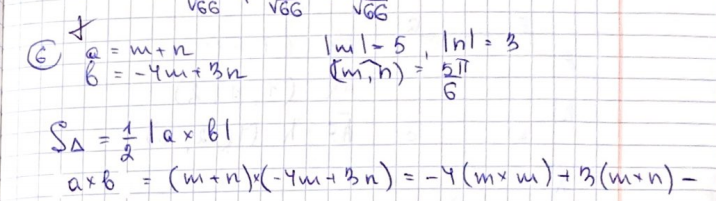 √66 √66 √66
6 a = m+n |m| = 5, |n| = 3
b = -4m+3n (m,^n) = 5π/6
S△ = 1/2 |a × b|
a×b = (m+n)×(-4m+3n) = -4(m×m)+3(m×n) -